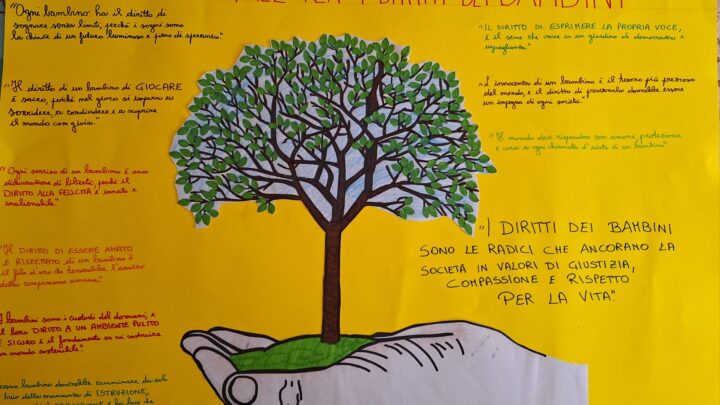 PER I DIRITTI DEI BAMBINI
"Ogni bambino ha il diritto di
sognare senza limiti, perché i sogni sono
la chiave di un futuro luminoso e pieno di speranza"
"Il diritto di un bambino di GIOCARE
è sacro, poiché nel gioco si impara a
sorridere, a condividere e a scoprire
il mondo con gioia."
"Ogni sorriso di un bambino è una
dichiarazione di libertà, perché il
DIRITTO ALLA FELICITÀ è innato e
inalienabile"
"IL DIRITTO DI ESSERE AMATO
E RISPETTATO di un bambino è
il filo d'oro che
della compassione umana."
I bambini sono i custodi del domani, e
il loro DIRITTO A UN AMBIENTE PULITO
E SICURO è il fondamento su cui costruire
un mondo sostenibile"
bambino dovrebbe camminare da solo
buio della mancanza di ISTRUZIONE,
è la luce che
"IL DIRITTO DI ESPRIMERE LA PROPRIA VOCE,
È il seme che cresce in un giardino di democrazia e
uguaglianza"
"L'innocenza di un bambino è il tesoro più prezioso
del mondo, e il diritto di preservarla dovrebbe essere
un impegno di ogni società"
"Il mondo deve rispondere con amore, protezione
e cura a ogni chiamata d'aiuto di un bambino"
"I DIRITTI DEI BAMBINI
SONO LE RADICI CHE ANCORANO LA
SOCIETÀ IN VALORI DI GIUSTIZIA,
COMPASSIONE E RISPETTO
PER LA VITA."